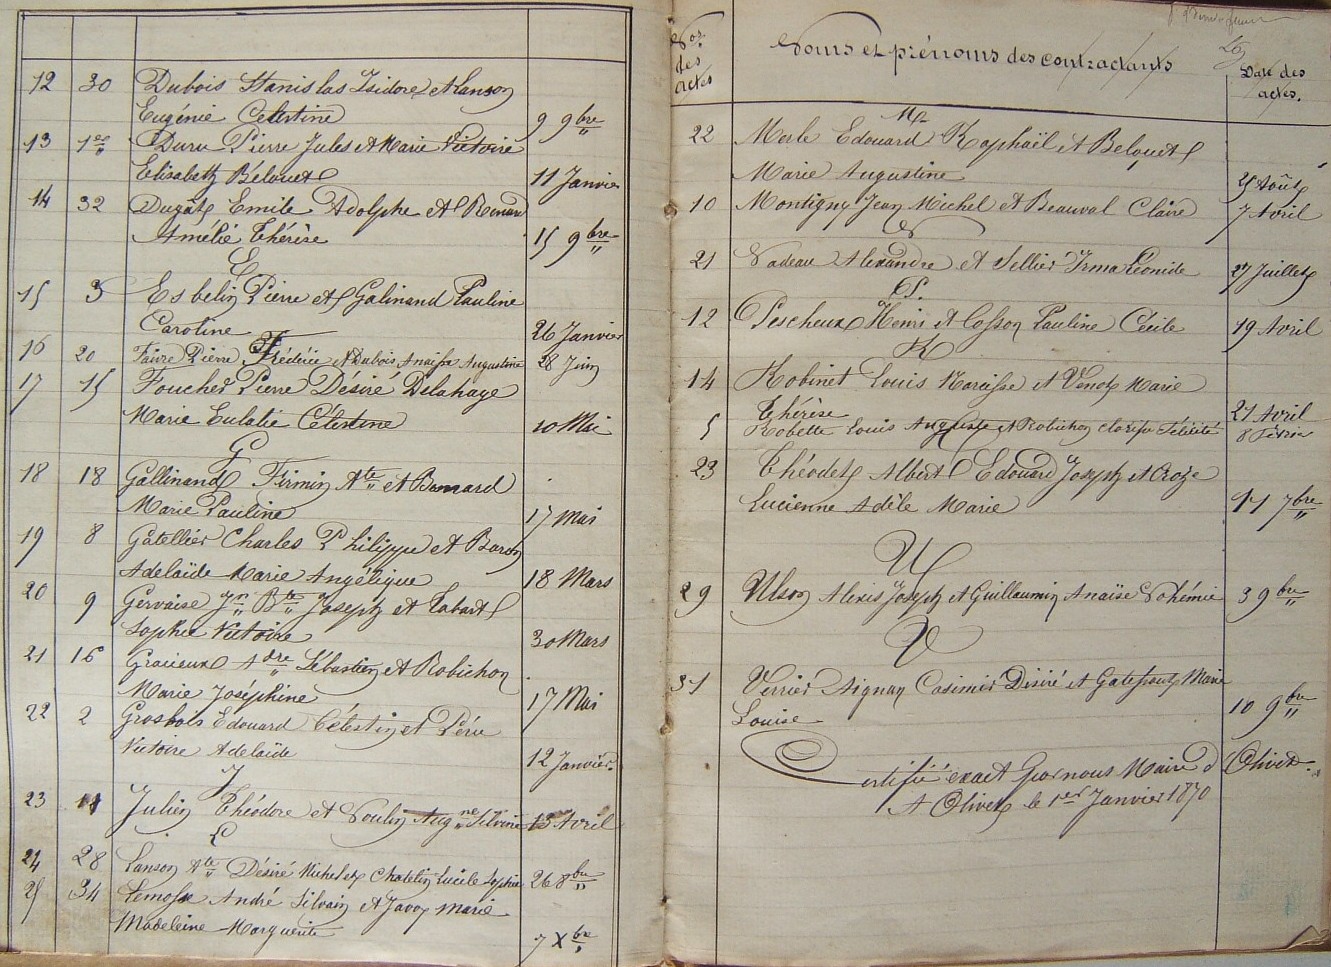 12 30 Dubois Stanislas Isidore et Lanson
Eugénie Celestine 9 9bre
13 1er Duru Pierre Jules et Marie Victoire
Elisabeth Bélouet 11 Janvier
14 32 Dugât Emile Adolphe et
Amélie Thérèse 15 9bre
E
15 3 Esbelin Pierre et Galinand Pauline
Caroline 26 Janvier
F
16 20 Faivre Pierre Frédéric et Dubois Anaïse Augustine 28 Juin
17 15 Foucher Pierre Désiré Delahaye
Marie Eulalie Célestine 10 Mai
G
18 18 Gallinand Firmin Ate et Bernard
Marie Pauline 17 Mai
19 8 Gatellier Charles Philippe et Baron
Adelaïde Marie Angélique 18 Mars
20 9 Gervaise Jn Bte Joseph et Tabart
Sophie Victoire 30 Mars
21 16 Gracieux Adre Sébastien et Robichon
Marie Joséphine 17 Mai
22 2 Grosbois Edouard Célestin et
Victoire Adelaïde 12 Janvier
J
23 11 Julien Théodore et Poulin Augne Silvine 13 Avril
L
24 28 Lanson Ate Désiré Michel et Chatelin Lucile Sophie 26 8bre
25 34 André Silvain et Javoy Marie
Madeleine Marguerite 7 Xbre
Nos des actes
Noms et prénoms des contractants
Date des actes.
M
22 Merle Edouard Raphaël et Belouet
Marie Augustine 25 Août
10 Montigny Jean Michel et Beauval Claire 7 Avril
N
21 Nadeau Alexandre et Sellier Irma Léonide 27 Juillet
P.
12 Pescheux Henri et Cosson Pauline Cécile 19 Avril
R
14 Robinet Louis Narcisse et Venot Marie
Thérèse 27 Avril
5 Robette Louis Auguste et Robichon Clarisse Félicité 8 Février
23 Théodet Albert Edouard Joseph et Croze
Lucienne Adèle Marie 11 7bre
U
29 Ulson Alexis Joseph et Guillaumin Anaïse Nohémie 3 9bre
V
31 Verrier Aignan Casimir Désiré et Marie
Louise 10 9bre
Certifié exact par nous Maire d'Olivet.
A Olivet le 1er Janvier 1870